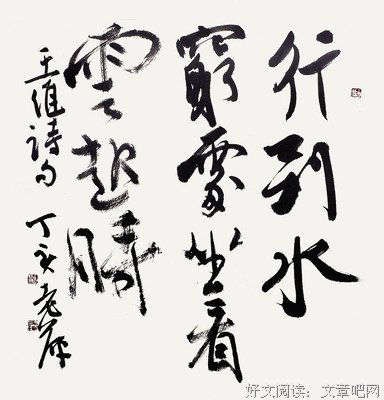 行到水
窮處坐看
雲起時
王維詩句 丁亥
好文阅读：文章吧网